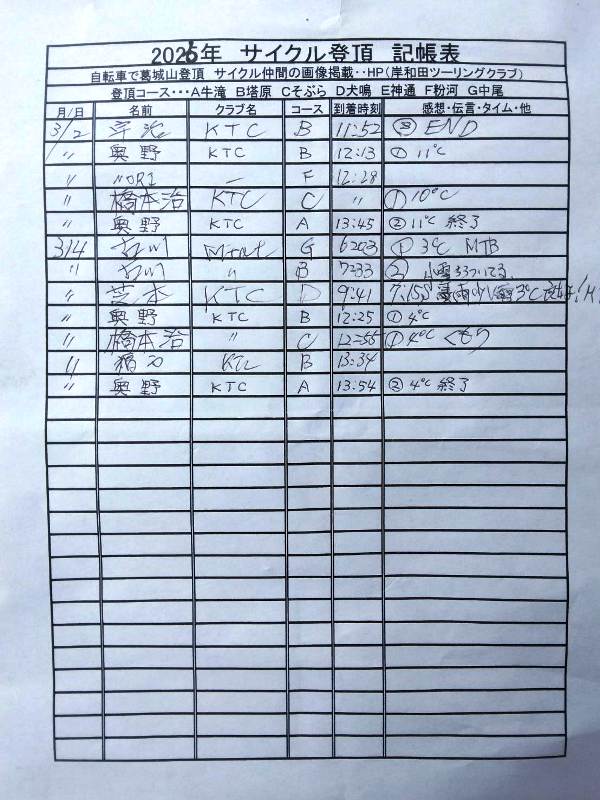 2025年 サイクル登頂 記帳表
自転車で葛城山登頂 サイクル仲間の画像掲載‥HP(岸和田ツーリングクラブ)
登頂コース･･･A牛滝 B塔原 Cそぶら D犬鳴 E神通 F粉河 G中尾
月/日 名前 クラブ名 コース 到着時刻 感想・伝言・タイム・他
3/2 KTC B 11:52 ③ END
〃 奥野 KTC B 12:13 ① 11℃
〃 NORI — F 12:28
〃 橋本治 KTC C 〃 ① 10℃
〃 奥野 KTC A 13:45 ② 11℃ 終了
3/4 古川 G ① 3℃ MTB
〃 古川 〃 B 7:33 ②
〃 芝本 KTC D 9:41
〃 奥野 KTC B 12:25 ① 4℃
〃 橋本治 〃 C 12:55 ① 4℃ くもり
〃 KTC B 13:34
〃 奥野 KTC A 13:54 ② 4℃ 終了